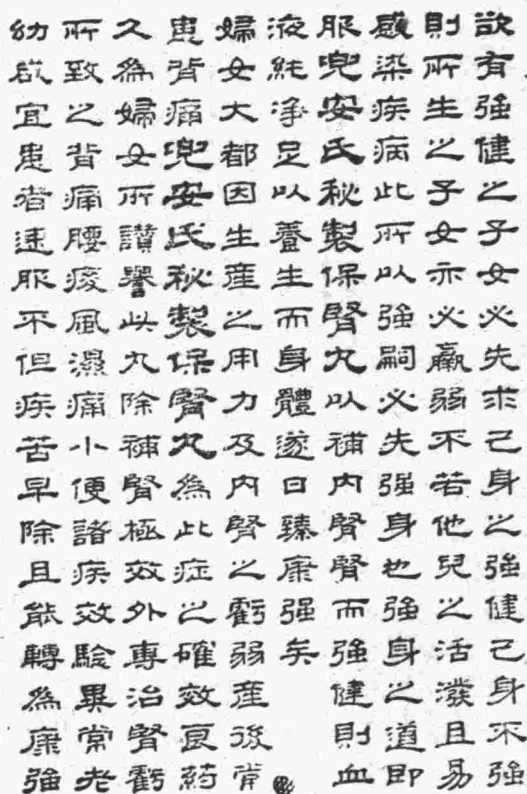 欲有強健之子女必先求己身之強健己身不強
則所生之子女亦必羸弱不若他兒之活潑且易
感染疾病此所以強嗣必先強身也強身之道即
服兜安氏秘製保腎丸以補內腎腎而強健則血
液純淨足以養生而身體遂日臻康強矣
婦女大都因生產之用力及內腎之虧弱產後常
患背痛兜安氏秘製保腎丸為此症之確效良药
久為婦女所讚譽此丸除補腎極效外專治腎虧
所致之背痛腰痠風濕痛小便諸疾效驗異常老
幼咸宜患者速服不但疾苦早除且能轉為康強